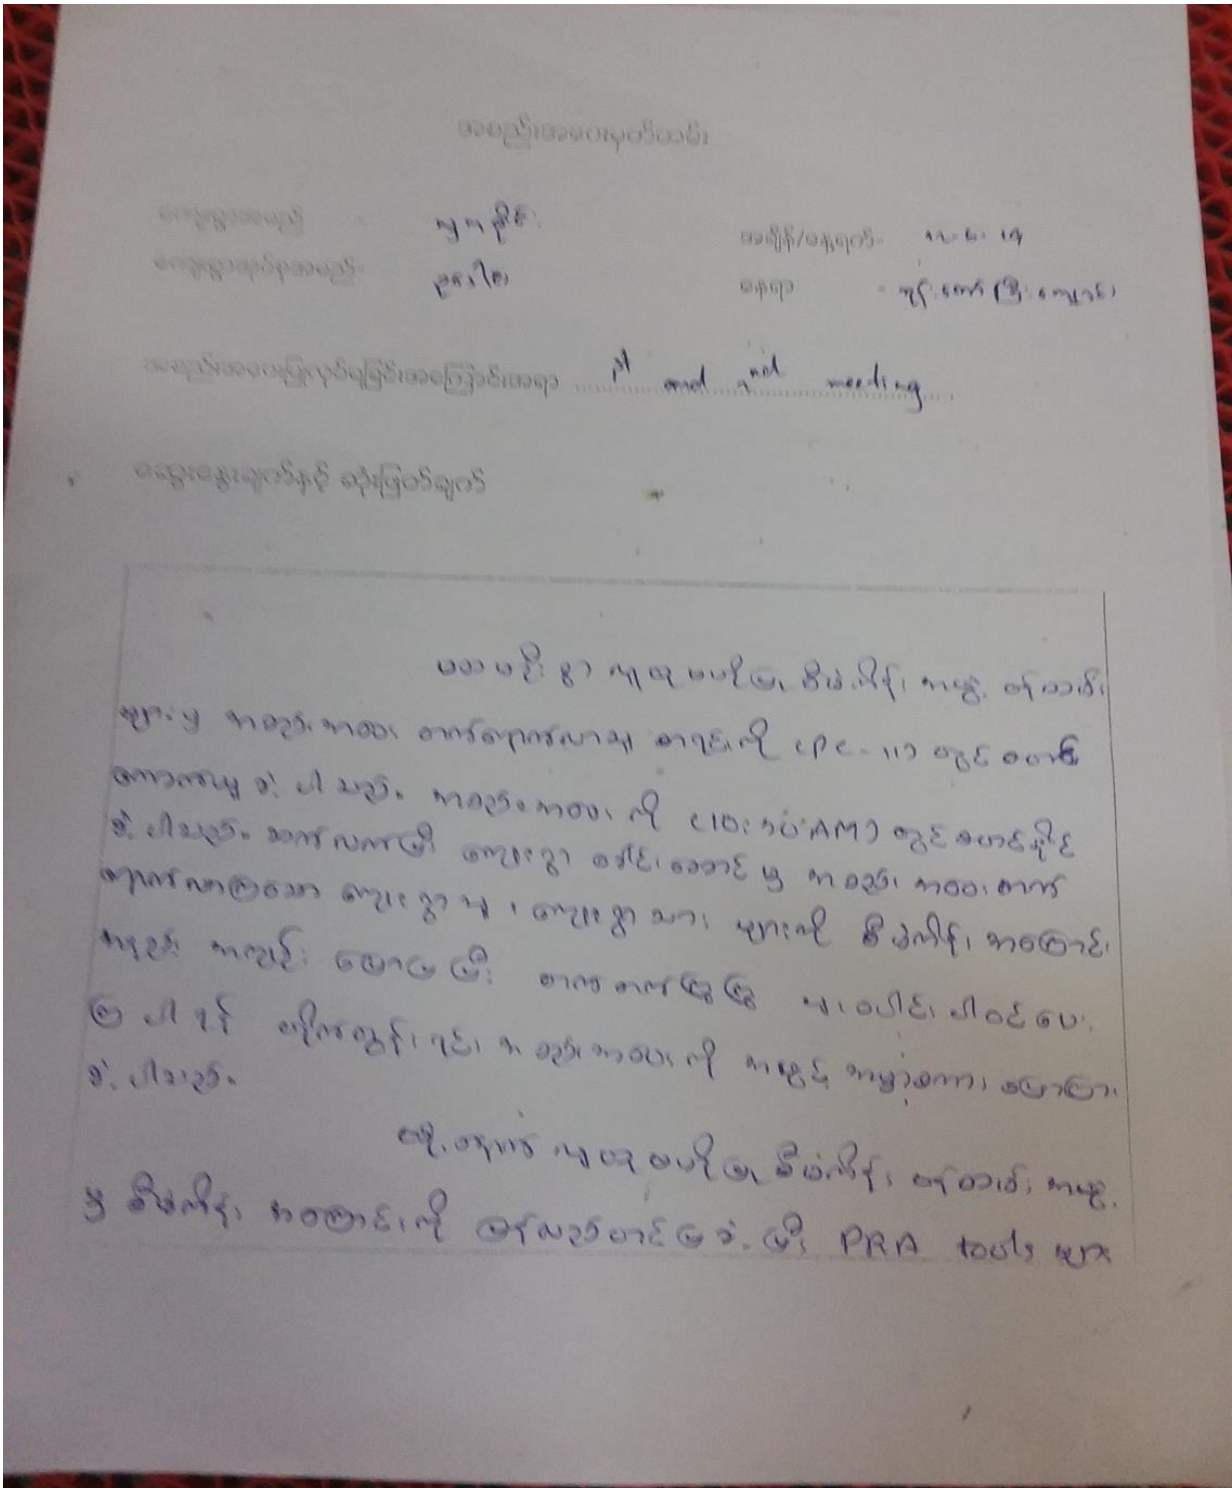 အစည်းအဝေးမှတ်တမ်း
ကျေးရွာအမည် -
အချိန်/နေ့ရက် -
ကျေးရွာအုပ်စုအမည် -
နေရာ - ဘုန်းတော်ကြီးကျောင်း
အစည်းအဝေးပြုလုပ်ရခြင်းအကြောင်းအရာ ........ 1st and 2nd meeting ........
ဆွေးနွေးချက်နှင့် ဆုံးဖြတ်ချက်
ပထမဦးစွာ လူထုဗဟိုပြု စီမံကိန်းအဖွဲ့ ဝန်ထမ်း
များမှ အစည်းအဝေး တက်ရောက်လာသူ စာရင်းကို (PC-11) တွင် စတင်
ကောက်ယူခဲ့ပါသည်။ အစည်းအဝေးကို (10:30 AM) တွင် စတင်နိုင်
ခဲ့ပါသည်။ ဆက်လက်ပြီး ကျေးရွာ ခေါင်းဆောင်မှ အစည်းအဝေးတက်
ရောက်လာကြသော ကျေးရွာသူ၊ ကျေးရွာသား များကို စီမံကိန်း အကြောင်း
အနည်း အကျဉ်း ပြောပြပြီး တက်တက်ကြွကြွ ပူးပေါင်း ပါဝင်ပေး
ကြပါရန် တိုက်တွန်းရင်း အစည်းအဝေးကို အဖွင့် အမှာစကား ပြောကြား
ခဲ့ပါသည်။
ထို့နောက် လူထုဗဟိုပြု စီမံကိန်း ဝန်ထမ်း အဖွဲ့
မှ စီမံကိန်း အကြောင်းကို ပြန်လည်တင်ပြခဲ့ပြီး PRA tools များ